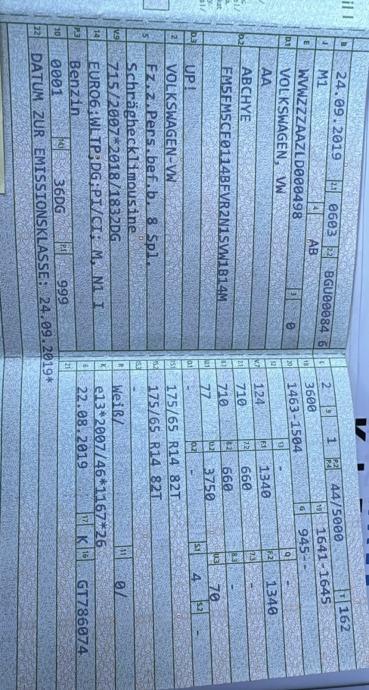 B 24.09.2019 2.1 0603 2.2 BGU00084 6
J M1 4 AB
E WVWZZZAAZLD000498 3 0
D.1 VOLKSWAGEN, VW
AA
D.2 ABCHYE
FM5FM5CF0114BFVR2N1SVW1B14M
D.3 UP!
2 VOLKSWAGEN-VW
5 Fz.z.Pers.bef.b. 8 Spl.
Schräghecklimousine
V.9 715/2007*2018/1832DG
14 EURO6;WLTP;DG;PI/CI; M, N1 I
P.3 Benzin
10 0001 14.1 36DG P.1 999
22 DATUM ZUR EMISSIONSKLASSE: 24.09.2019*
2 9 1 P.2 P.4 44/5000 T 162
18 3600 19 1641-1645
20 1463-1504 G 945--
12 - 13 - Q -
V.7 124 F.1 1340 F.2 1340
7.1 710 7.2 660 7.3 -
8.1 710 8.2 660 8.3 -
U.1 77 U.2 3750 U.3 70
O.1 - O.2 - S.1 4 S.2 -
15.1 175/65 R14 82T
15.2 175/65 R14 82T
15.3 -
R Weiß/ 11 0/
K e13*2007/46*1167*26
6 22.08.2019 17 K 16 GT786074
21